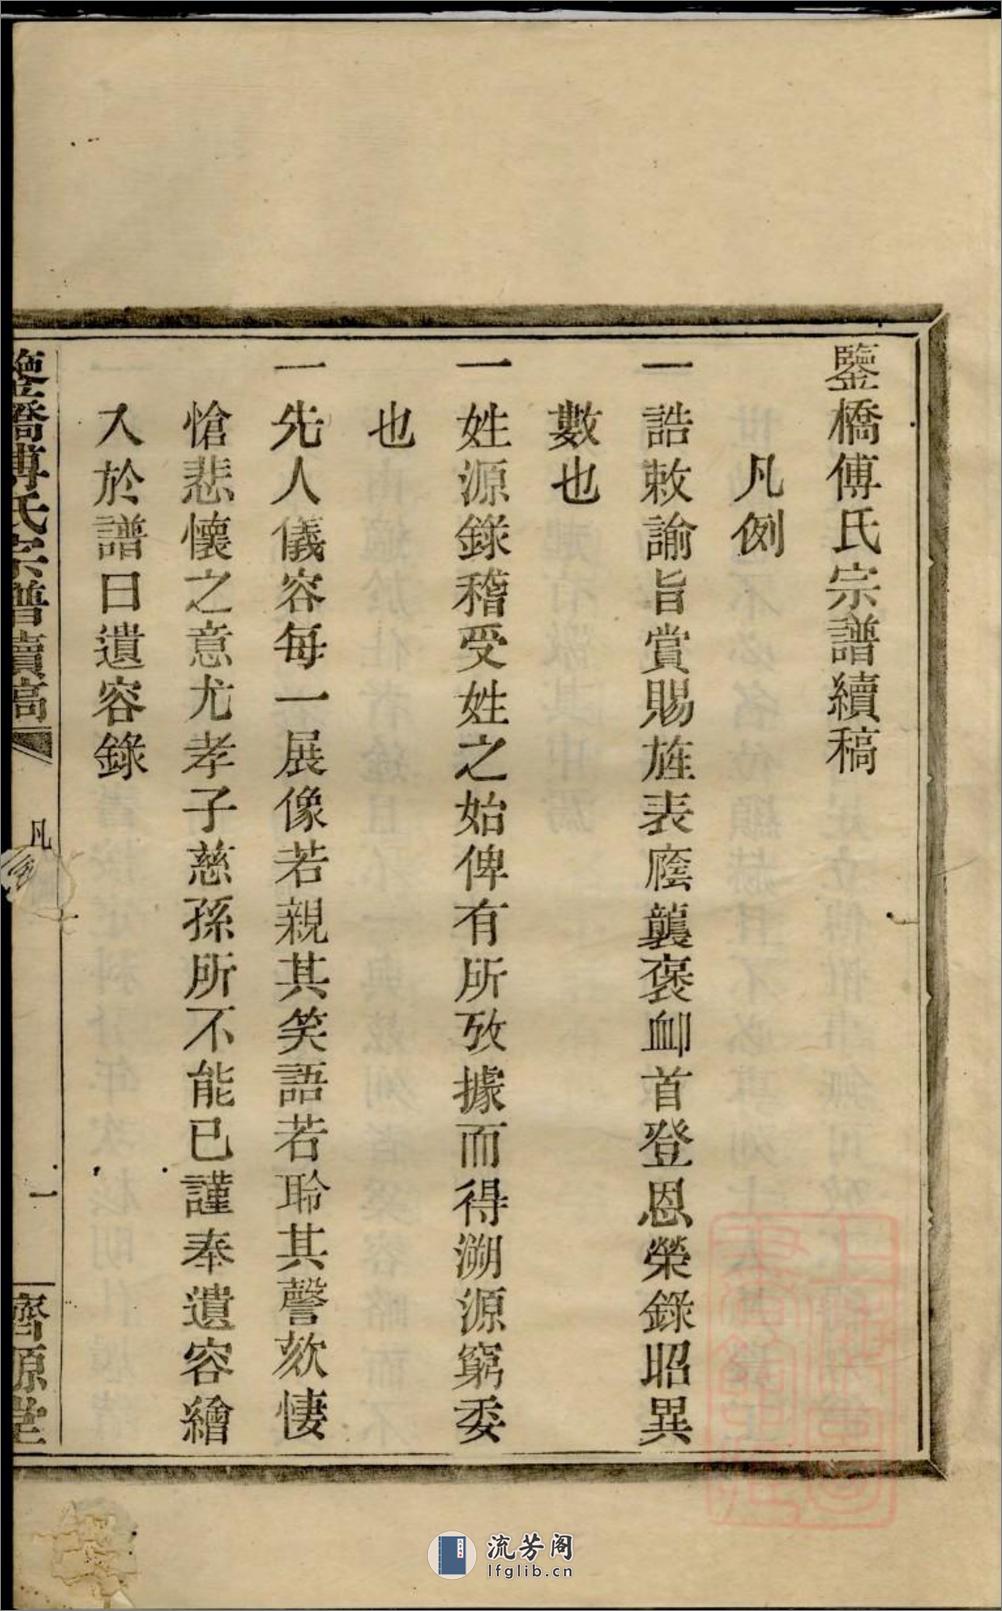 鑒橋傅氏宗譜續稿
凡例
一誥敕諭旨賞賜旌表廕襲褒卹首登恩榮錄昭異
數也
一姓源錄稽受姓之始俾有所攷據而得溯源窮委
也
一先人儀容每一展像若親其笑語若聆其謦欬悽
愴悲懷之意尤孝子慈孫所不能已謹奉遺容繪
入於譜曰遺容錄
鑒橋傅氏宗譜續稿
凡
一
濟源堂
流芳阁
lfglib.cn